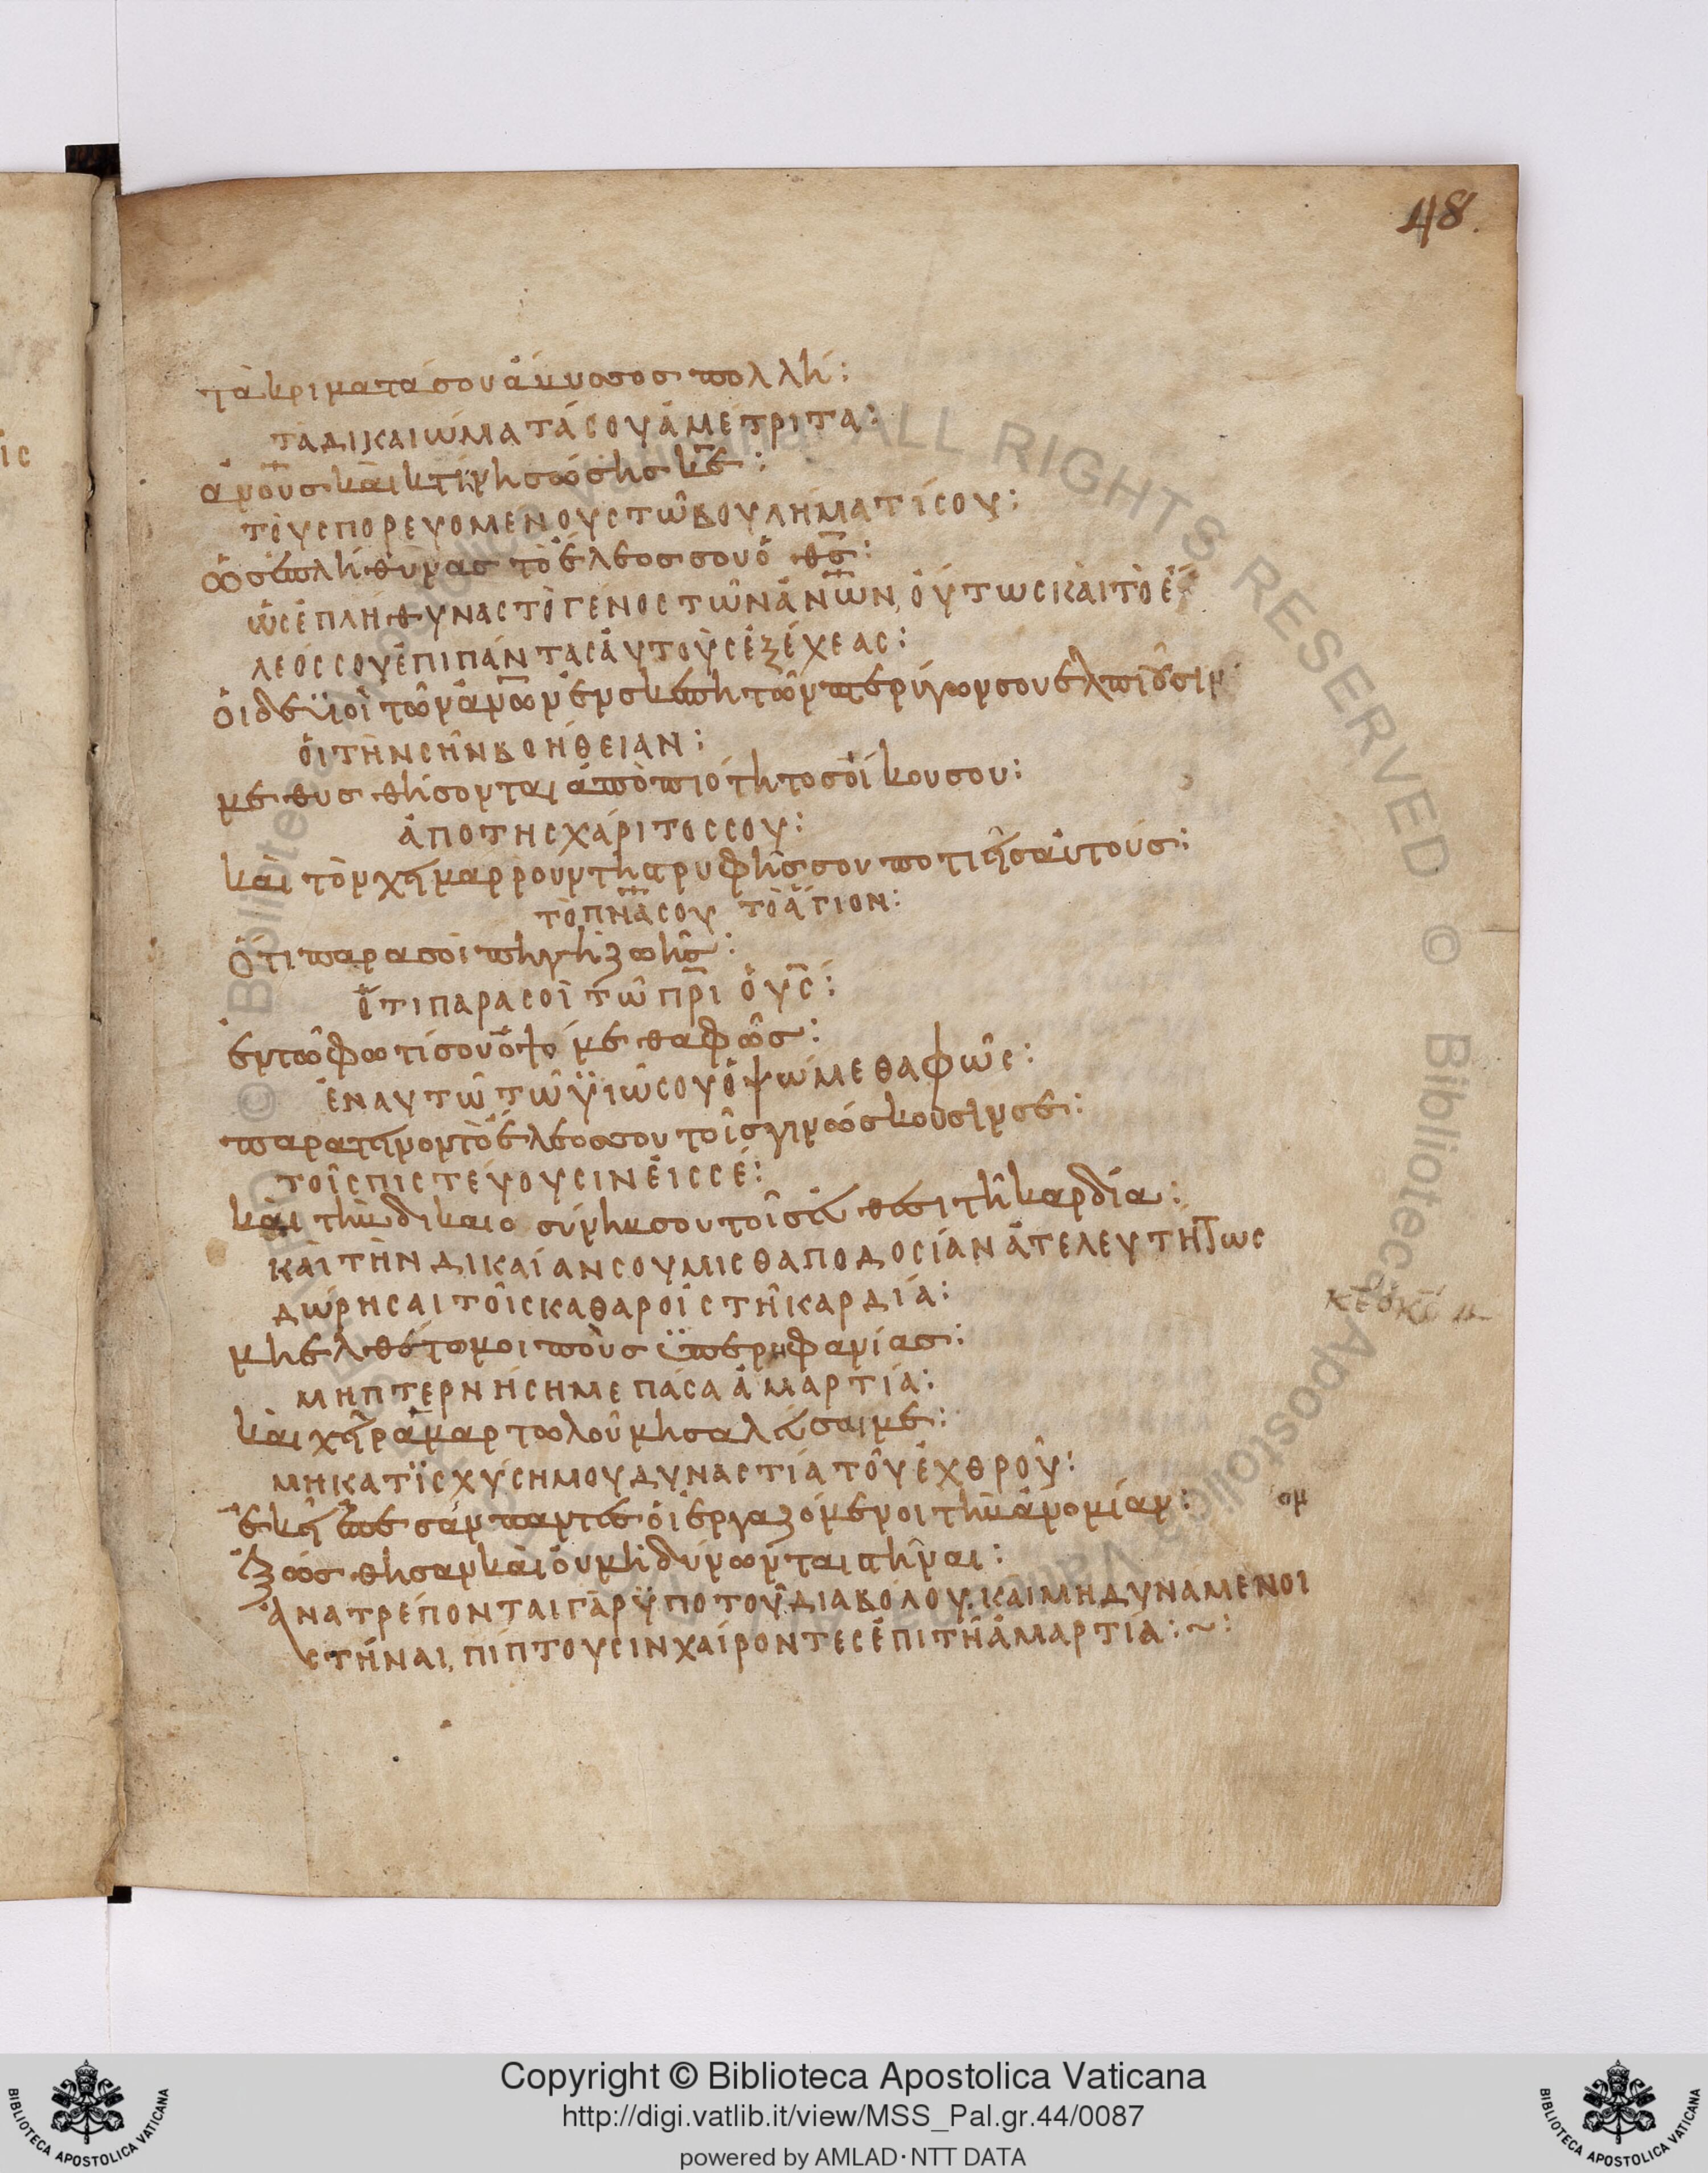 48.
τὰ κρίματά σου ἄβυσσος πολλή:
ΤΑ ΔΙΚΑΙΩΜΑΤΑ ΣΟΥ ἈΜΕΤΡΙΤΑ:
ἀν̅ο̅υ̅σ̅ καὶ κτίνη σώσης κ̅ε̅:
ΤΟΥΣ ΠΟΡΕΥΟΜΕΝΟΥΣ ΤΩ ΒΟΥΛΗΜΑΤΙ ΣΟΥ:
ὡς ἐπλήθυνας τὸ ἔλεος σου ὁ θ̅ς̅:
ὩΣ ἘΠΛΗΘΥΝΑΣ ΤΟ ΓΕΝΟΣ ΤΩΝ ἈΝ̅Ω̅Ν̅, ὉΥΤΩΣ ΚΑΙ ΤΟ Ἐ
ΛΕΟΣ ΣΟΥ ἘΠΙ ΠΑΝΤΑΣ ἈΥΤΟΥΣ ἘΞΕΧΕΑΣ:
ὁι δὲ ϋἱοὶ τῶν ἀν̅ω̅ν̅ ἐν σκέπη τῶν πτερύγων σου ἐλπιοῦσιν
ὉΙ ΤΗΝ ΣΗΝ ΒΟΗΘΕΙΑΝ:
μεθυσθήσονται ἀπὸ πιότητος ὀίκου σου:
ἈΠΟ ΤΗΣ ΧΑΡΙΤΟΣ ΣΟΥ:
καὶ τὸν χειμάρρουν τῆ τρυφῆς σου ποτιεῖς ἀυτούς:
ΤΟ Π̅Ν̅Α̅ ΣΟΥ ΤΟ ἍΓΙΟΝ:
ὅτι παρα σοὶ πηγὴ ζωῆς:
ὍΤΙ ΠΑΡΑ ΣΟΙ ΤΩ Π̅Ρ̅Ι̅ Ὁ Υ̅Σ̅:
ἐν τῶ φωτί σου ὀψόμεθα φῶς:
ἘΝ ΑΥΤΩ ΤΩ ΫΙΩ ΣΟΥ ὈΨΩΜΕΘΑ ΦΩΣ:
παρατεινον τὸ ἔλεος σου τοῖς γινώσκουσιν σέ:
ΤΟΙΣ ΠΙΣΤΕΥΟΥΣΙΝ ἘΙΣ ΣΕ:
καὶ τὴν δικαιοσύνην σου τοῖς ἐυθέσι τῆ καρδία:
ΚΑΙ ΤΗΝ ΔΙΚΑΙΑΝ ΣΟΥ ΜΙΣΘΑΠΟΔΟΣΙΑΝ ἈΤΕΛΕΥΤΗΤΩΣ
ΔΩΡΗΣΑΙ ΤΟΙΣ ΚΑΘΑΡΟΙΣ ΤΗ ΚΑΡΔΙΑ:
μὴ ἐλθέτω μοι ποὺς ϋπερηφανίας:
ΜΗ ΠΤΕΡΝΗΣΗ ΜΕ ΠΑΣΑ ἉΜΑΡΤΙΑ:
καὶ χεὶρ ἁμαρτωλοῦ μὴ σαλεύσαι με:
ΜΗ ΚΑΤΪΣΧΥΣΗ ΜΟΥ ΔΥΝΑΣΤΙΑ ΤΟΥ ἘΧΘΡΟΥ:
ἐκεῖ ἔπεσαν παντες ὁι ἐργαζόμενοι τὴν ἀνομίαν:
ἐξώσθησαν καὶ ὀυ μὴ δύνωνται στῆναι:
ἈΝΑΤΡΕΠΟΝΤΑΙ ΓΑΡ ΫΠΟ ΤΟΥ ΔΙΑΒΟΛΟΥ, ΚΑΙ ΜΗ ΔΥΝΑΜΕΝΟΙ
ΣΤΗΝΑΙ, ΠΙΠΤΟΥΣΙΝ ΧΑΙΡΟΝΤΕΣ ἘΠΙ ΤΗ ἉΜΑΡΤΙΑ:~:
Copyright © Biblioteca Apostolica Vaticana
http://digi.vatlib.it/view/MSS_Pal.gr.44/0087
powered by AMLAD·NTT DATA